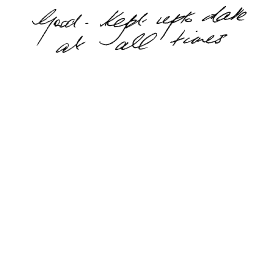 Good - Kept upto date
at all times